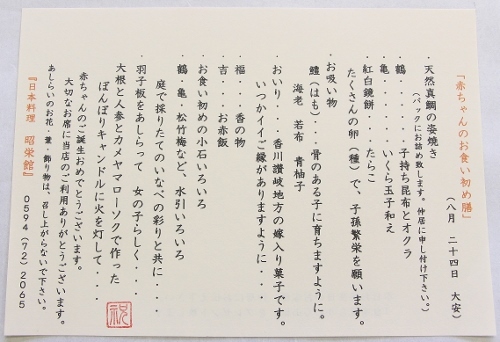 「赤ちゃんのお食い初め膳」
（八月 二十四日 大安）
・天然真鯛の姿焼き
（パックにお詰め致します。仲居に申し付け下さい。）
・鶴・・・・・子持ち昆布とオクラ
・亀・・・・・いくら玉子和え
・紅白鏡餅・・・・たらこ
たくさんの卵（種）で、子孫繁栄を願います。
・お吸い物
鱧（はも）・・・骨のある子に育ちますように。
海老 若布 青柚子
・おいり・・・香川讃岐地方の嫁入り菓子です。
いつかイイご縁がありますように・・・
・福・・香の物
・吉・・お赤飯
・お食い初めの小石いろいろ
庭で採りたてのいなべの彩りと共に・・・
・鶴・亀 松竹梅など、水引いろいろ
・羽子板をあしらって 女の子らしく・・・
大根と人参とカメヤマローソクで作った
ぼんぼりキャンドルに火を灯して・・・
赤ちゃんのご誕生おめでとうございます。
大切なお席に当店のご利用ありがとうございます。
あしらいのお花・葉・飾り物は、召し上がらないで下さい。
『日本料理 昭栄館』
0594（72）2065
祝